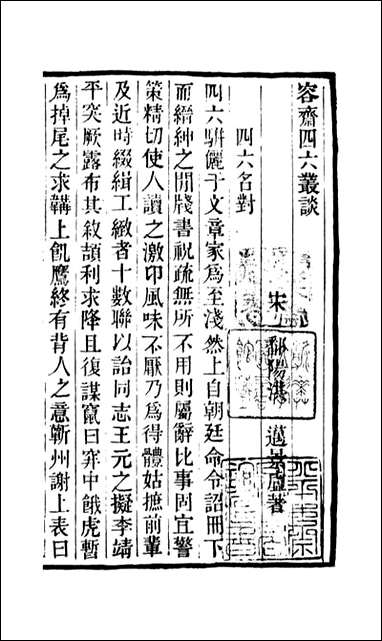 容齋四六叢談
宋 鄱陽洪 邁景盧著
四六名對
四六騈儷于文章家爲至淺然上自朝廷命令詔冊下
而縉紳之閒牋書祝疏無所不用則屬辭比事固宜警
策精切使人讀之激卬風味不厭乃爲得體姑摭前輩
及近時綴緝工緻者十數聯以詒同志王元之擬李靖
平突厥露布其敘頡利求降且復謀竄曰穽中餓虎暫
爲掉尾之求韝上飢鷹終有背人之意蘄州謝上表曰